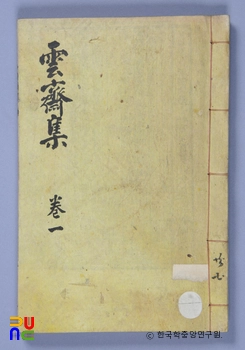 雲齋集
卷一
ⓒ 한국학중앙연구원